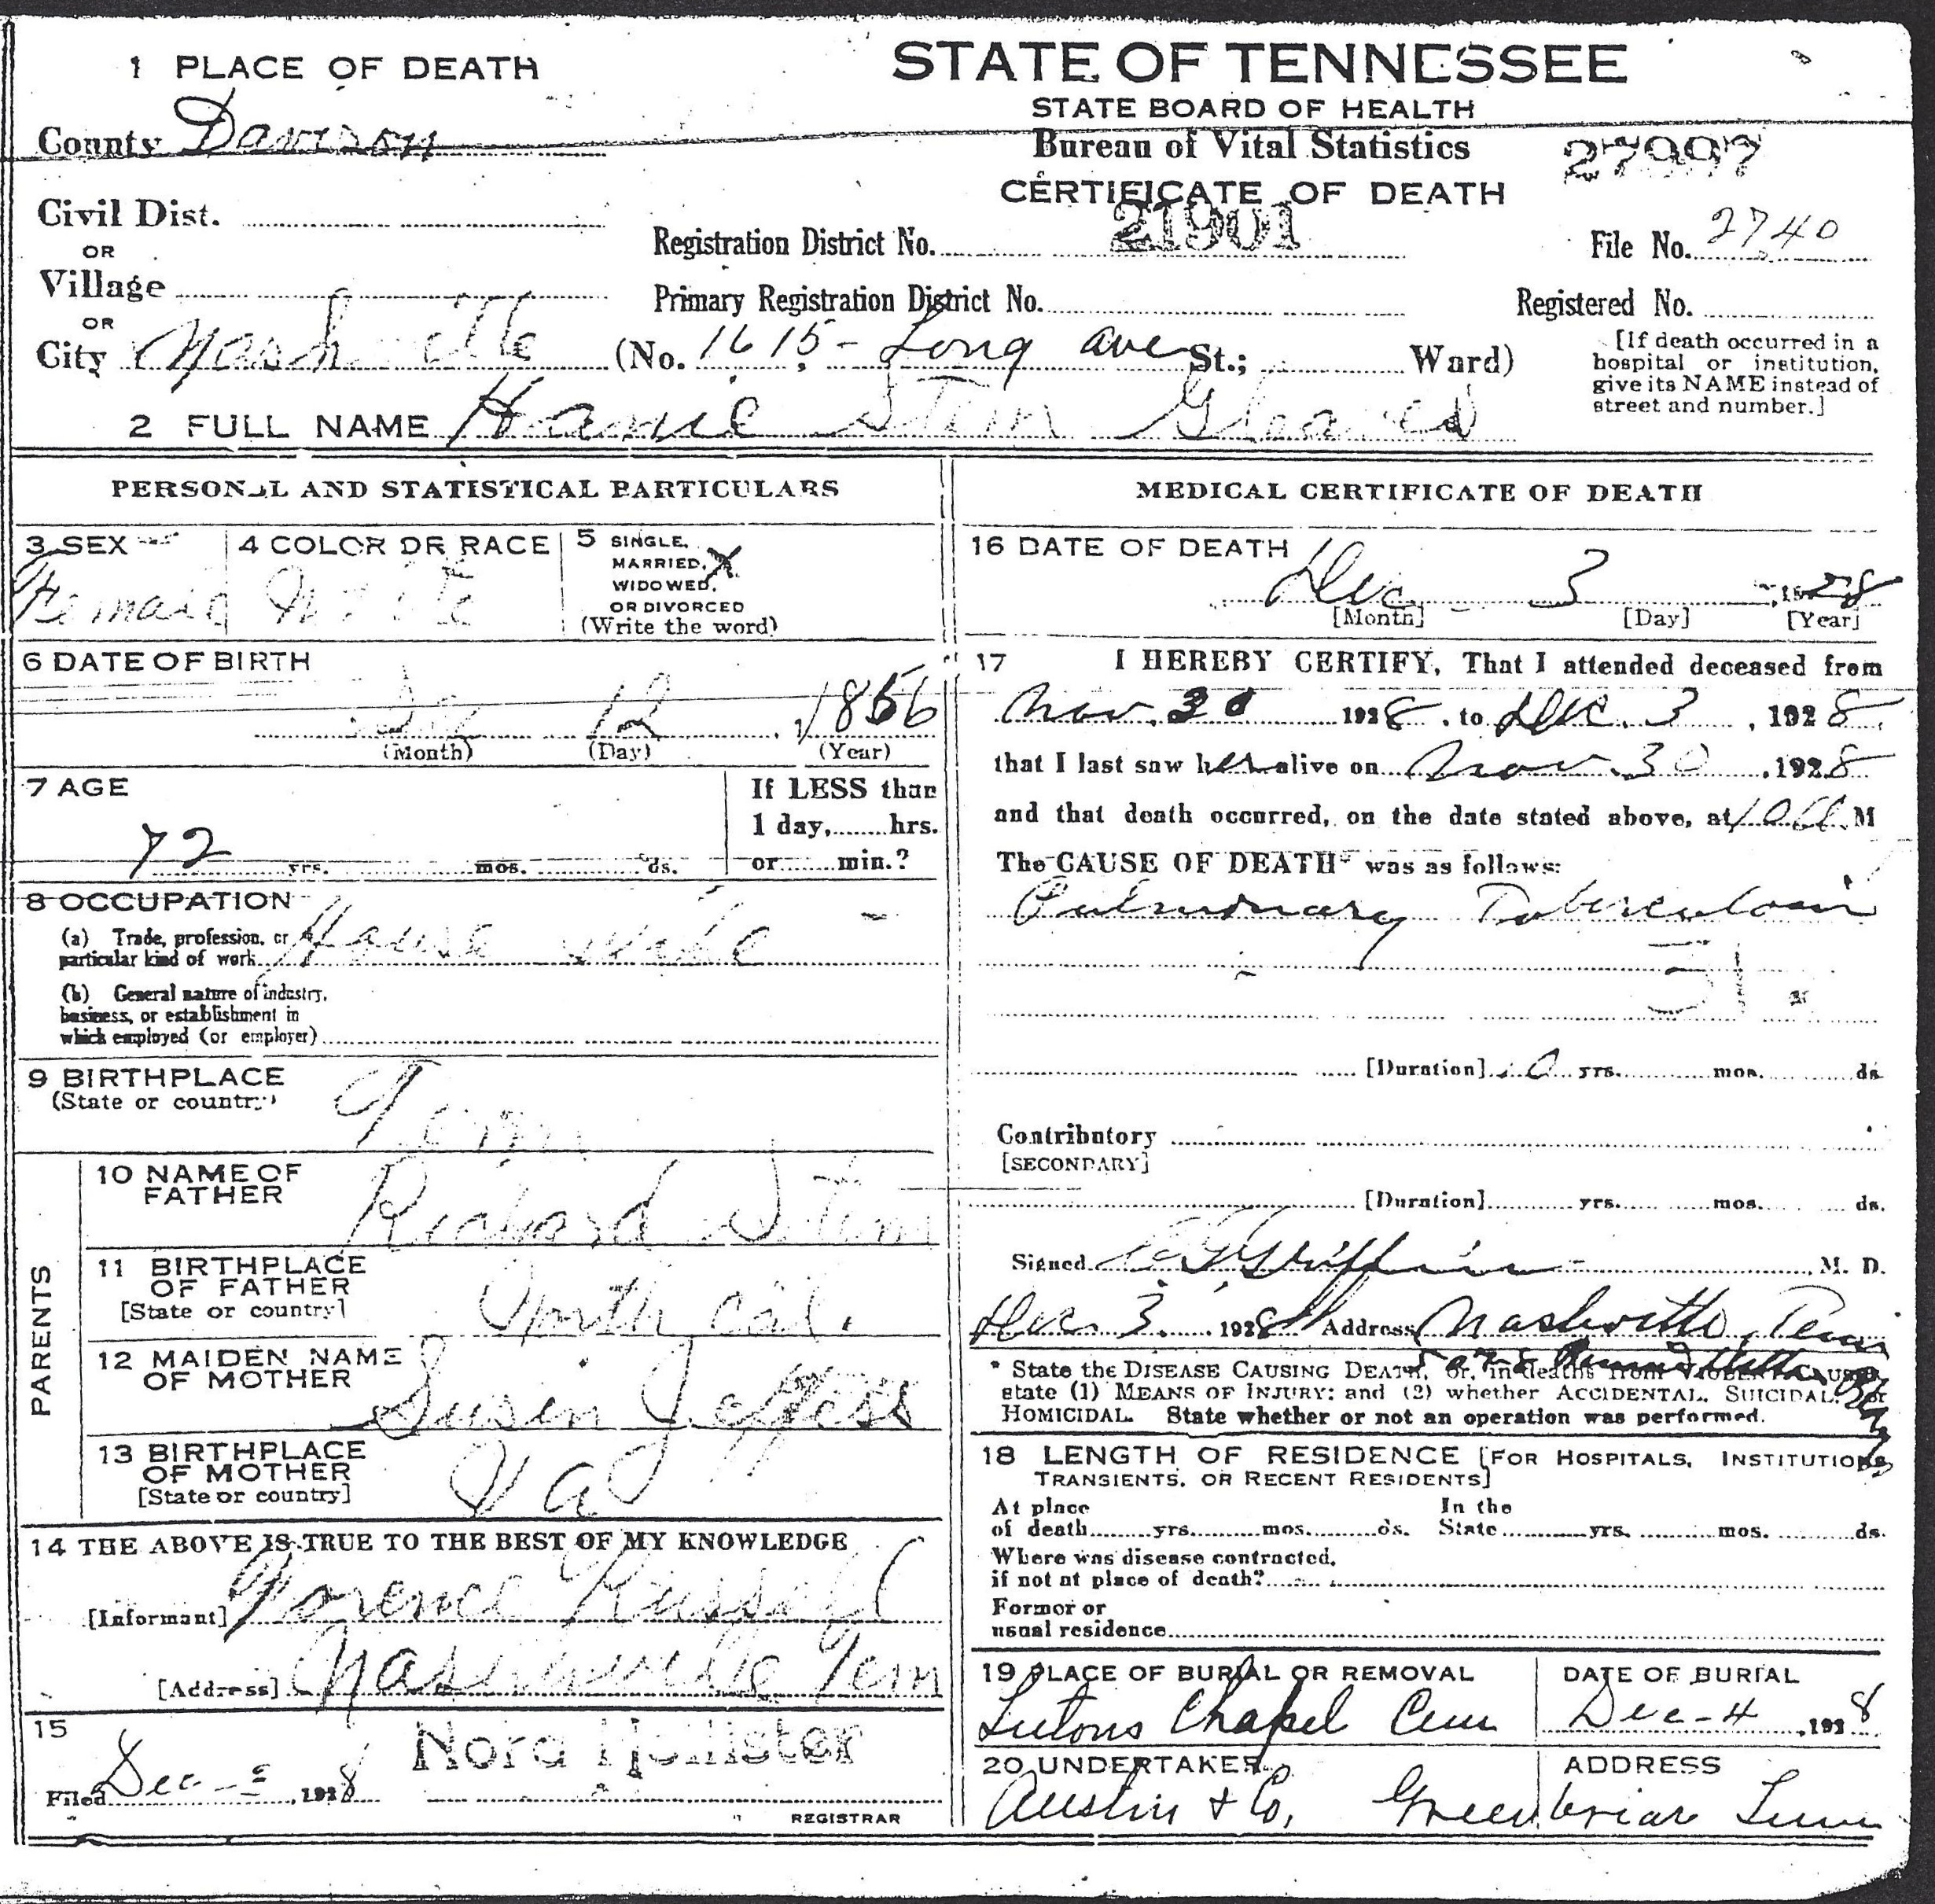 1 PLACE OF DEATH
STATE OF TENNESSEE
STATE BOARD OF HEALTH
County Davidson
Bureau of Vital Statistics
27997
CERTIFICATE OF DEATH
Civil Dist.
OR
21901
Registration District No.
File No. 2740
Village
OR
Primary Registration District No.
Registered No.
City Nashville (No. 1615 - Long ave St.; Ward)
[If death occurred in a
hospital or institution,
give its NAME instead of
street and number.]
2 FULL NAME Gleaves
PERSONAL AND STATISTICAL PARTICULARS
3 SEX
Female
4 COLOR OR RACE
White
5 SINGLE,
MARRIED, X
WIDOWED,
OR DIVORCED
(Write the word)
6 DATE OF BIRTH
12 1856
(Month) (Day) (Year)
7 AGE
72 yrs. mos. ds.
If LESS than
1 day, hrs.
or min.?
8 OCCUPATION
(a) Trade, profession, or
particular kind of work House wife
(b) General nature of industry,
business, or establishment in
which employed (or employer)
9 BIRTHPLACE
(State or country) Tenn
PARENTS
10 NAME OF
FATHER
Richard
11 BIRTHPLACE
OF FATHER
[State or country]
North Cal.
12 MAIDEN NAME
OF MOTHER
Susin Jeffess
13 BIRTHPLACE
OF MOTHER
[State or country]
Va
14 THE ABOVE IS TRUE TO THE BEST OF MY KNOWLEDGE
[Informant] Florence Russell
[Address] Nashville Tenn
15
Filed Dec - 1928
Nora Hollister
REGISTRAR
MEDICAL CERTIFICATE OF DEATH
16 DATE OF DEATH
Dec 3 1928
[Month] [Day] [Year]
17 I HEREBY CERTIFY, That I attended deceased from
Nov. 30 1928, to Dec. 3, 1928,
that I last saw her alive on Nov. 30, 1928
and that death occurred, on the date stated above, at 10 a. M
The CAUSE OF DEATH* was as follows:
Pulmonary Tuberculosis
31.
[Duration] yrs. mos. ds.
Contributory
[SECONDARY]
[Duration] yrs. mos. ds.
Signed Griffin M. D.
Dec. 3. 1928 Address Nashville, Tenn
* State the DISEASE CAUSING DEATH, or, in deaths from VIOLENT CAUSES
state (1) MEANS OF INJURY; and (2) whether ACCIDENTAL, SUICIDAL, or
HOMICIDAL. State whether or not an operation was performed.
18 LENGTH OF RESIDENCE [FOR HOSPITALS, INSTITUTIONS,
TRANSIENTS, OR RECENT RESIDENTS]
At place
of death yrs. mos. ds.
In the
State yrs. mos. ds.
Where was disease contracted,
if not at place of death?
Former or
usual residence
19 PLACE OF BURIAL OR REMOVAL
Lutons Chapel Cem
DATE OF BURIAL
Dec - 4, 1928
20 UNDERTAKER
Austin & Co.
ADDRESS
Greenbriar Tenn